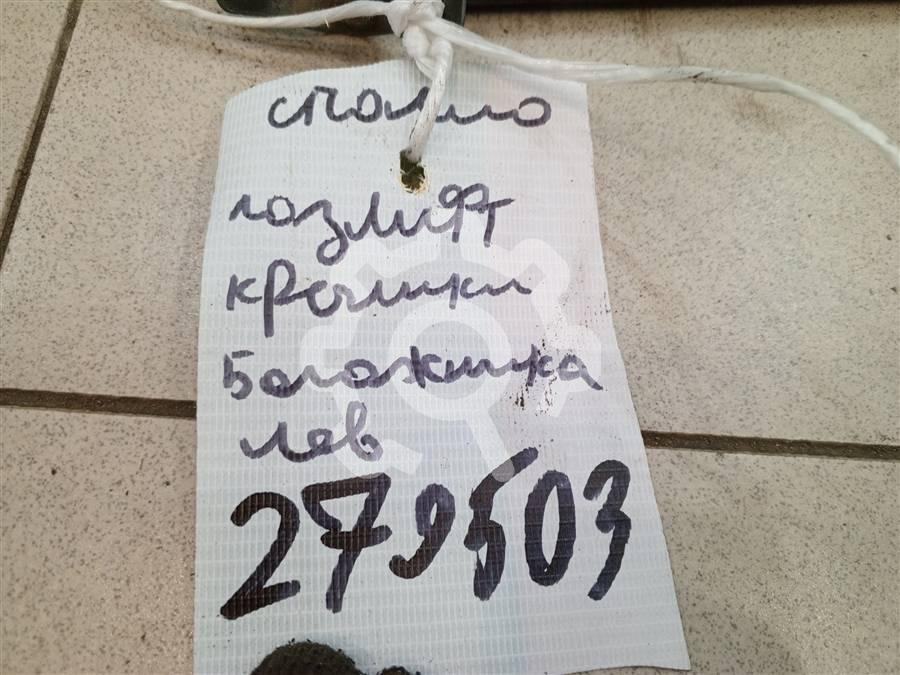 сталио
газлифт
крешки
Богожника
лев
279503